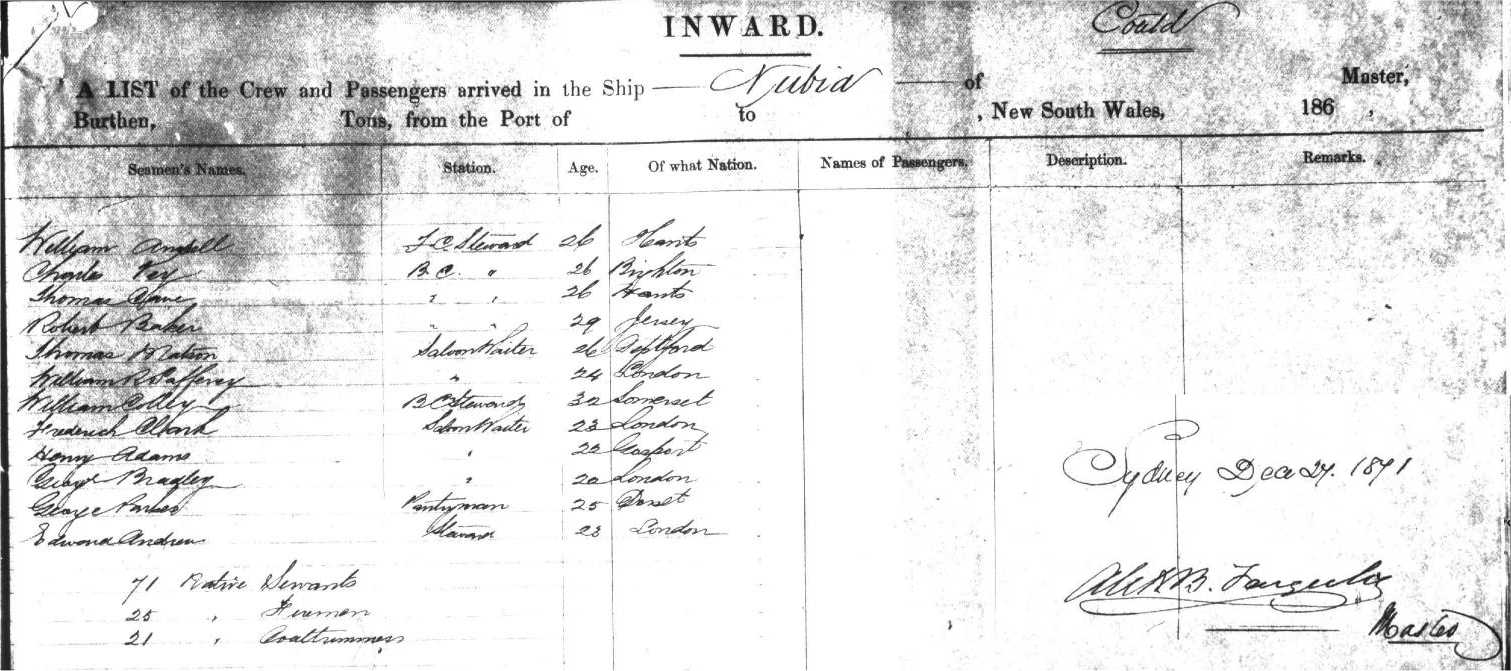 INWARD.
Contd
A LIST of the Crew and Passengers arrived in the Ship — Nubia — of Master,
Burthen, Tons, from the Port of to , New South Wales, 186 ,
Seamen's Names. Station. Age. Of what Nation. Names of Passengers. Description. Remarks.
William 26 Hants
Charles B.C. " 26 Brighton
Thomas " " 26 Hants
Robert Baker " " 29 Jersey
Thomas Matson Saloon Waiter 26 Deptford
William " 24 London
William B C Steward 32 Somerset
Frederick Clark Saloon Waiter 23 London
Henry Adams " 22 Gosport
George Bradley " 20 London
George Pantryman 25 Dorset
Edward Andrews Steward 23 London
Sydney Dec 27. 1871
71 Native Servants
25 " Firemen
21 " Coaltrimmers
Alex B.
Master